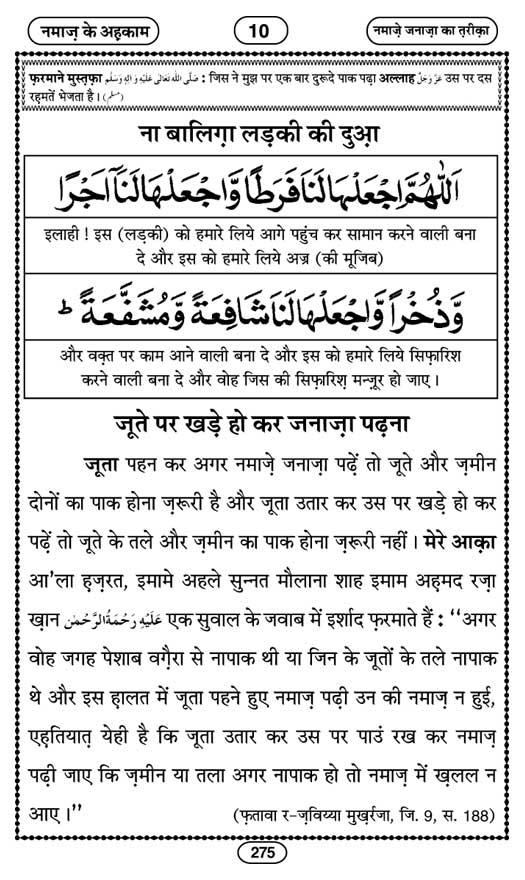 नमाज़ के अह़काम
10
नमाज़े जनाज़ा का त़रीक़ा
फ़रमाने मुस्त़फ़ा صَلَّى اللهُ تَعَالٰى عَلَيْهِ وَاٰلِهٖ وَسَلَّم : जिस ने मुझ पर एक बार दुरूदे पाक पढ़ा अल्लाह عَزَّ وَجَلَّ उस पर दस
रह़मतें भेजता है। (مسلم)
ना बालिग़ा लड़की की दुआ़
اَللّٰهُمَّ اجْعَلْهَا لَنَا فَرَطًا وَّاجْعَلْهَا لَنَآ اَجْرًا
इलाही ! इस (लड़की) को हमारे लिये आगे पहुंच कर सामान करने वाली बना
दे और इस को हमारे लिये अज्र (की मूजिब)
وَّذُخْرًا وَّاجْعَلْهَا لَنَا شَافِعَةً وَّمُشَفَّعَةً ؕ
और वक़्त पर काम आने वाली बना दे और इस को हमारे लिये सिफ़ारिश
करने वाली बना दे और वोह जिस की सिफ़ारिश मन्ज़ूर हो जाए।
जूते पर खड़े हो कर जनाज़ा पढ़ना
जूता पहन कर अगर नमाज़े जनाज़ा पढ़ें तो जूते और ज़मीन
दोनों का पाक होना ज़रूरी है और जूता उतार कर उस पर खड़े हो कर
पढ़ें तो जूते के तले और ज़मीन का पाक होना ज़रूरी नहीं। मेरे आक़ा
आ'ला ह़ज़रत, इमामे अहले सुन्नत मौलाना शाह इमाम अह़मद रज़ा
ख़ान عَلَيْهِ رَحْمَةُ الرَّحْمٰن एक सुवाल के जवाब में इर्शाद फ़रमाते हैं : ‘‘अगर
वोह जगह पेशाब वग़ैरा से नापाक थी या जिन के जूतों के तले नापाक
थे और इस ह़ालत में जूता पहने हुए नमाज़ पढ़ी उन की नमाज़ न हुई,
एह़तियात़ येही है कि जूता उतार कर उस पर पाउं रख कर नमाज़
पढ़ी जाए कि ज़मीन या तला अगर नापाक हो तो नमाज़ में ख़लल न
आए।’’
(फ़तावा र-ज़विय्या मुख़र्रजा, जि. 9, स. 188)
275